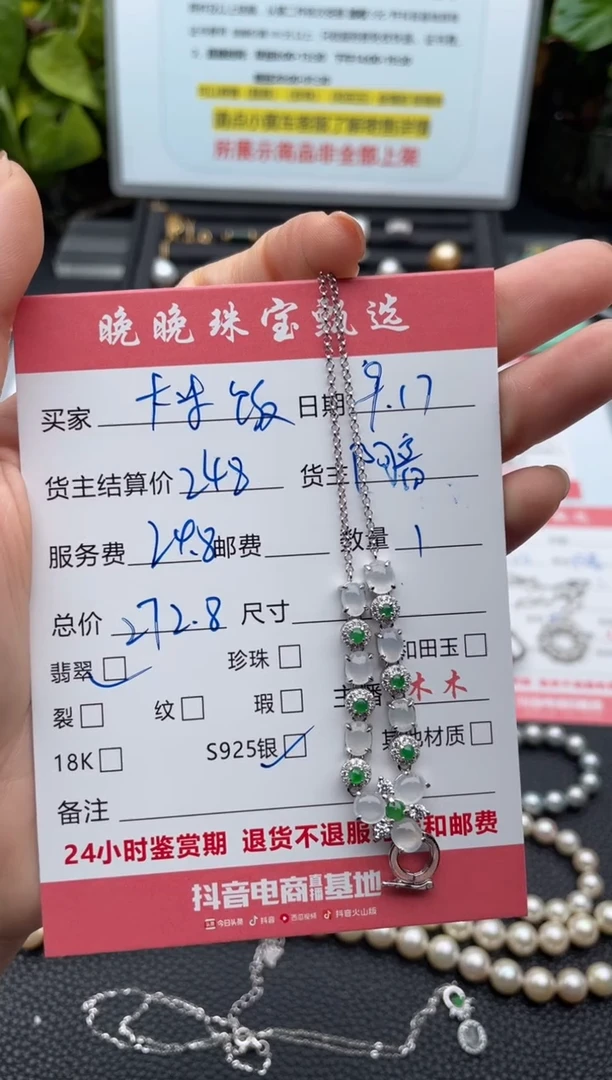 所展示商品非全部上架
晚晚珠宝甄选
买家 卡米饭 日期 9.17
货主结算价 248 货主
服务费 24.8 邮费 数量 1
总价 272.8 尺寸
翡翠 珍珠 和田玉
裂 纹 瑕 主播 木木
18K S925银 其他材质
备注
24小时鉴赏期 退货不退服 和邮费
抖音电商直播基地
今日头条 抖音 西瓜视频 抖音火山版